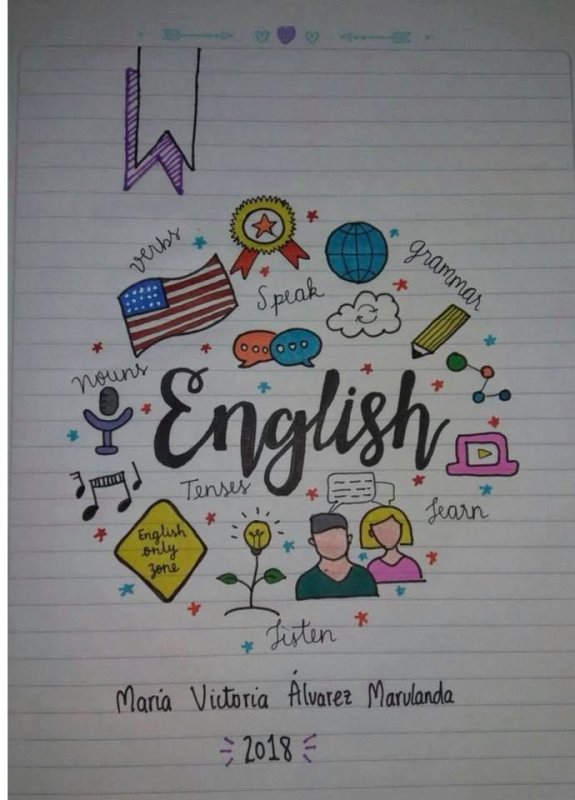 verbs
grammar
Speak
nouns
English
Tenses
Learn
English
only
zone
Listen
María Victoria Álvarez Marulanda
2018